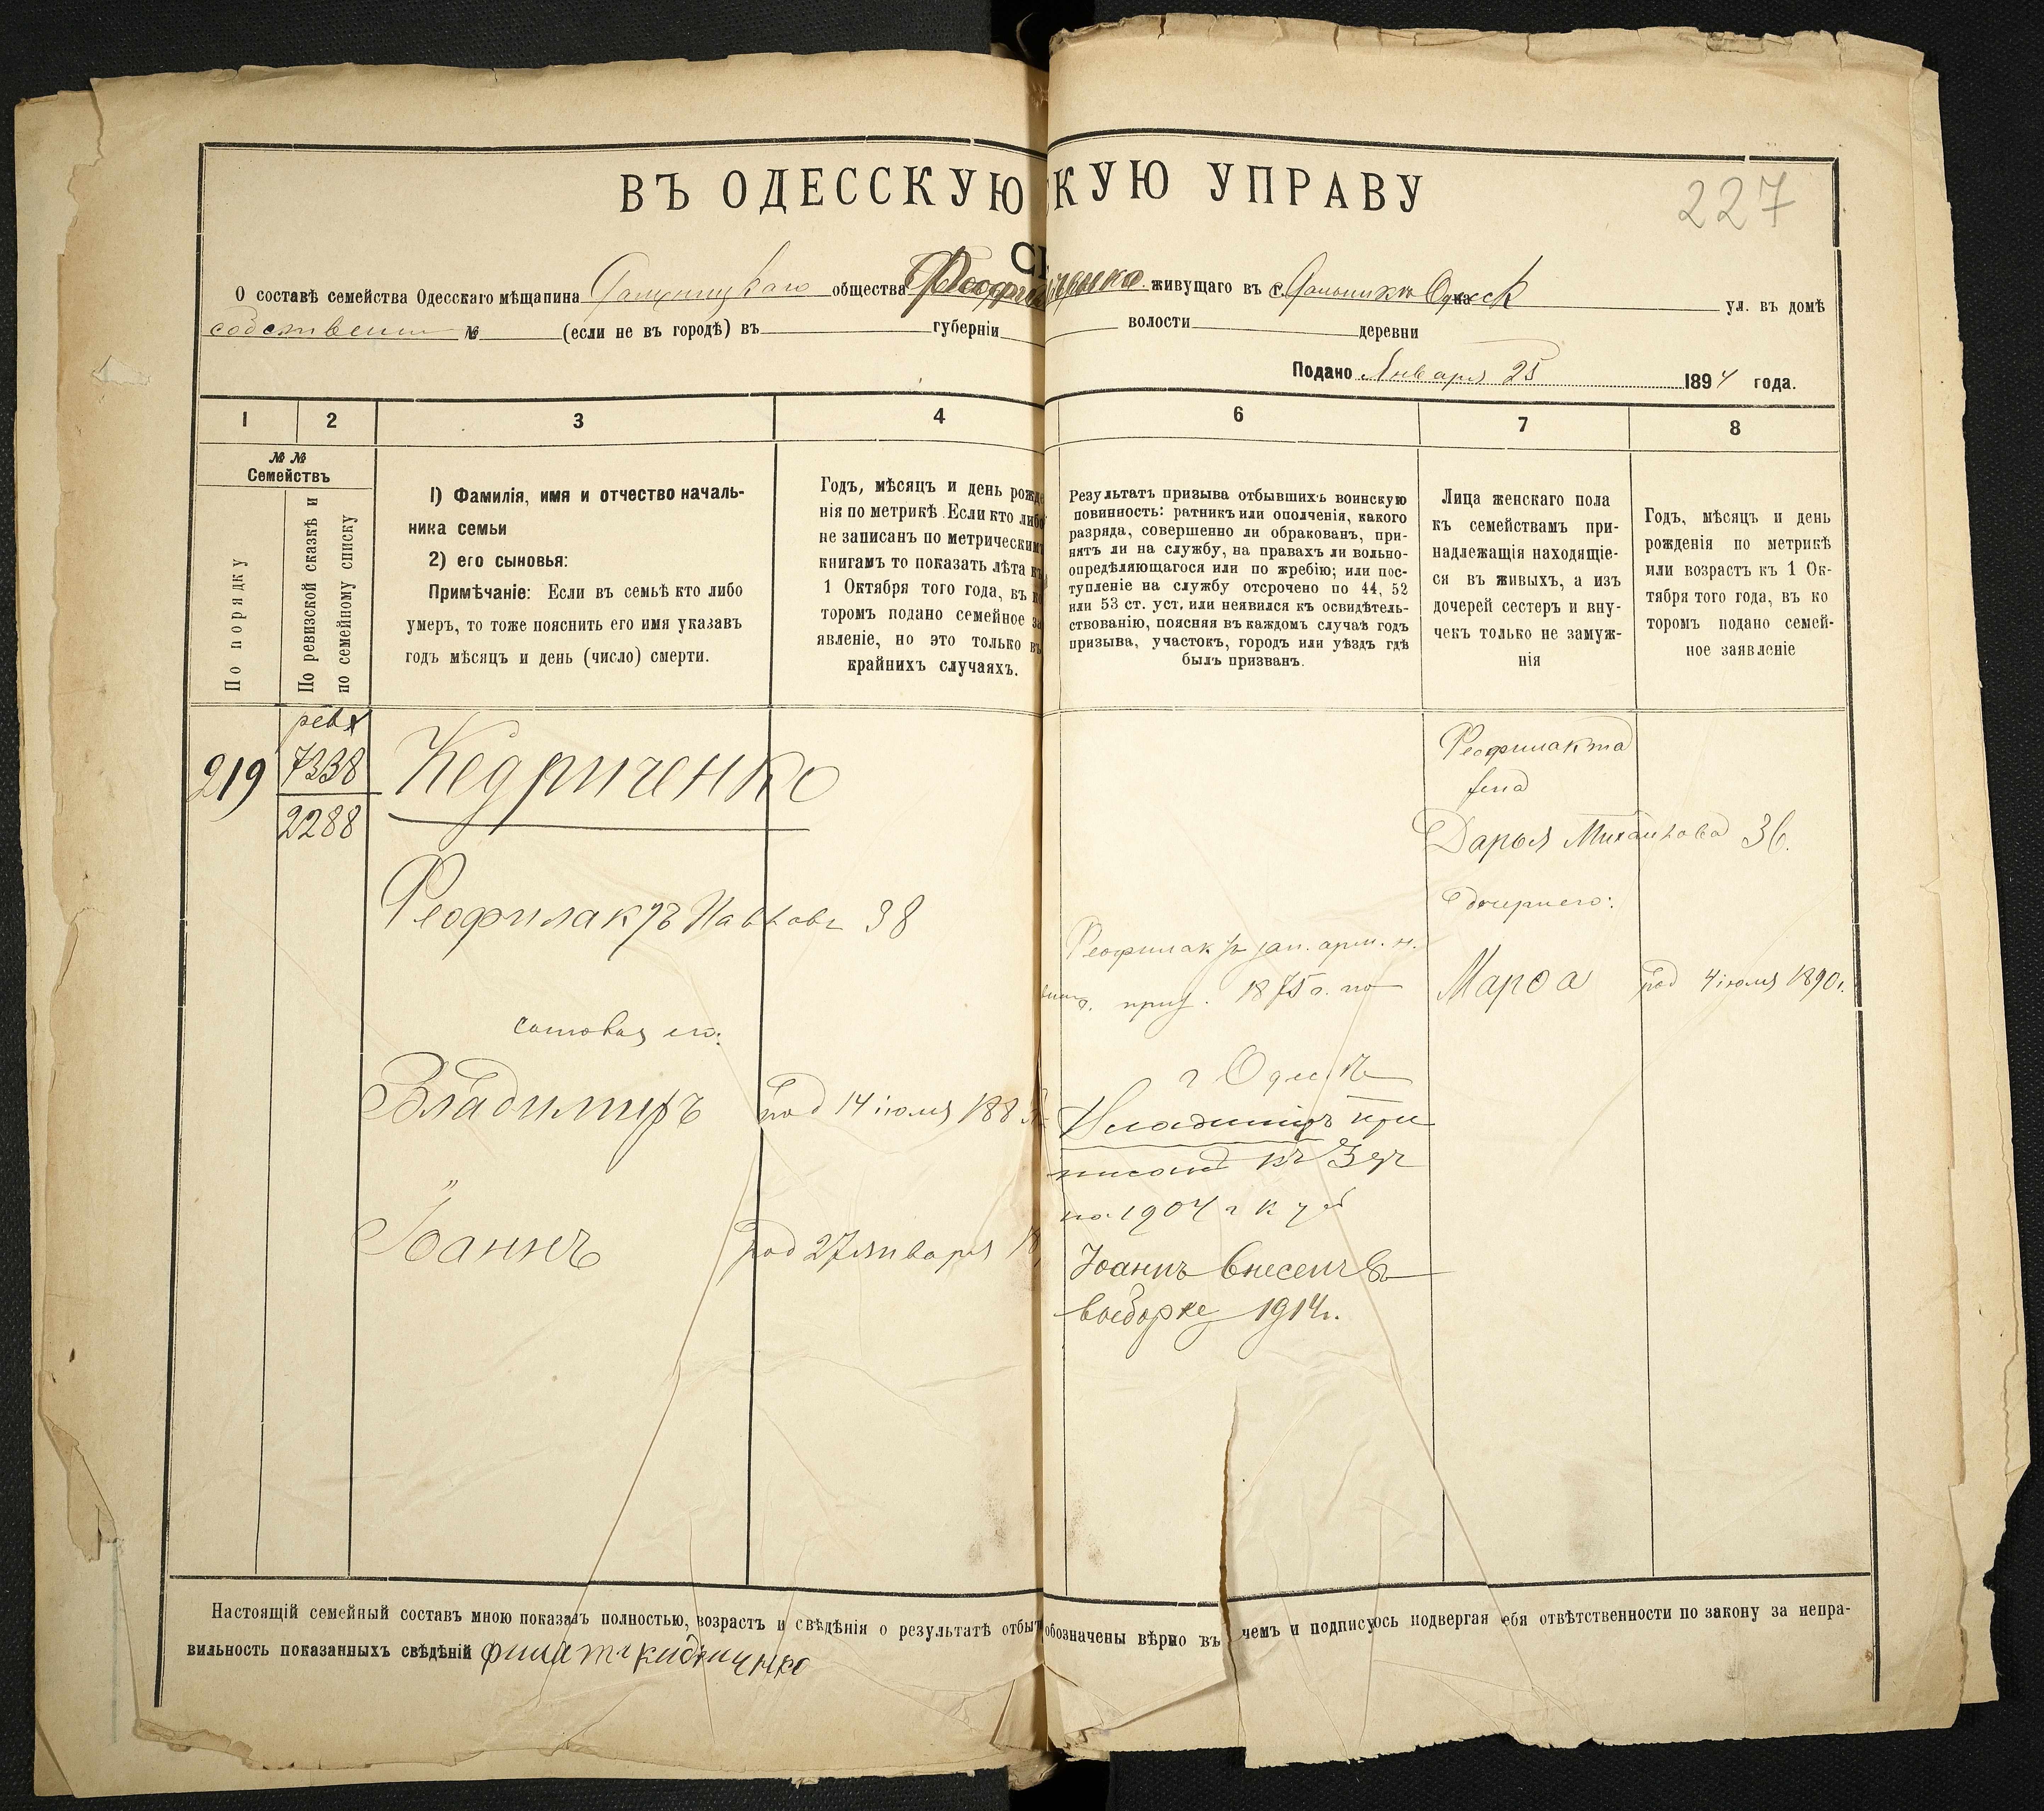 ВЪ ОДЕССКУЮ
КУЮ УПРАВУ
227
О составѣ семейства Одесскаго мѣщанина общества живущаго въ г. ул. въ домѣ
№ (если не въ городѣ) въ губерніи волости деревни
Подано Января 25 1894 года.
1 2 3 4 6 7 8
№ №
Семействъ
По порядку
По ревизской сказкѣ и
по семейному списку
1) Фамилія, имя и отчество началь-
ника семьи
2) его сыновья:
Примѣчаніе: Если въ семьѣ кто либо
умеръ, то тоже пояснить его имя указавъ
годъ мѣсяцъ и день (число) смерти.
Годъ, мѣсяцъ и день рожде
нія по метрикѣ. Если кто либо
не записанъ по метрическим
книгамъ то показать лѣта къ
1 Октября того года, въ к
торомъ подано семейное за
явленіе, но это только въ
крайнихъ случаяхъ.
Результатъ призыва отбывшихъ воинскую
повинность: ратникъ или ополченія, какого
разряда, совершенно ли обракованъ, при-
нятъ ли на службу, на правахъ ли вольно-
опредѣляющагося или по жребію; или пос-
тупленіе на службу отсрочено по 44, 52
или 53 ст. уст. или неявился къ освидѣтель-
ствованію, поясняя въ каждомъ случаѣ годъ
призыва, участокъ, городъ или уѣздъ гдѣ
былъ призванъ.
Лица женскаго пола
къ семействамъ при-
надлежащія находящіе-
ся въ живыхъ, а изъ
дочерей сестеръ и вну-
чекъ только не замуж-
нія
Годъ, мѣсяцъ и день
рожденія по метрикѣ
или возрастъ къ 1 Ок-
тября того года, въ ко
торомъ подано семей-
ное заявленіе
219
7338
2288
Кедриченко
Феофилактъ Павловъ 38
сыновья его:
Владиміръ род 14 іюля 188
Іоаннъ род 27 января
Феофилактъ зап. арм.
приз. 1875 г. по
г Одессѣ
Владиміръ при
писанъ къ
на 1904 г
Іоаннъ внесенъ въ
выборку 1914 г.
Феофилакта
жена
Дарья Михайлова 36.
дочь его:
Марѳа род 4 іюля 1890 г.
Настоящій семейный составъ мною показанъ полностью, возрастъ и свѣдѣнія о результатѣ отбыт
обозначены вѣрно въ чемъ и подписуюсь подвергая себя отвѣтственности по закону за непра-
вильность показанныхъ свѣдѣній